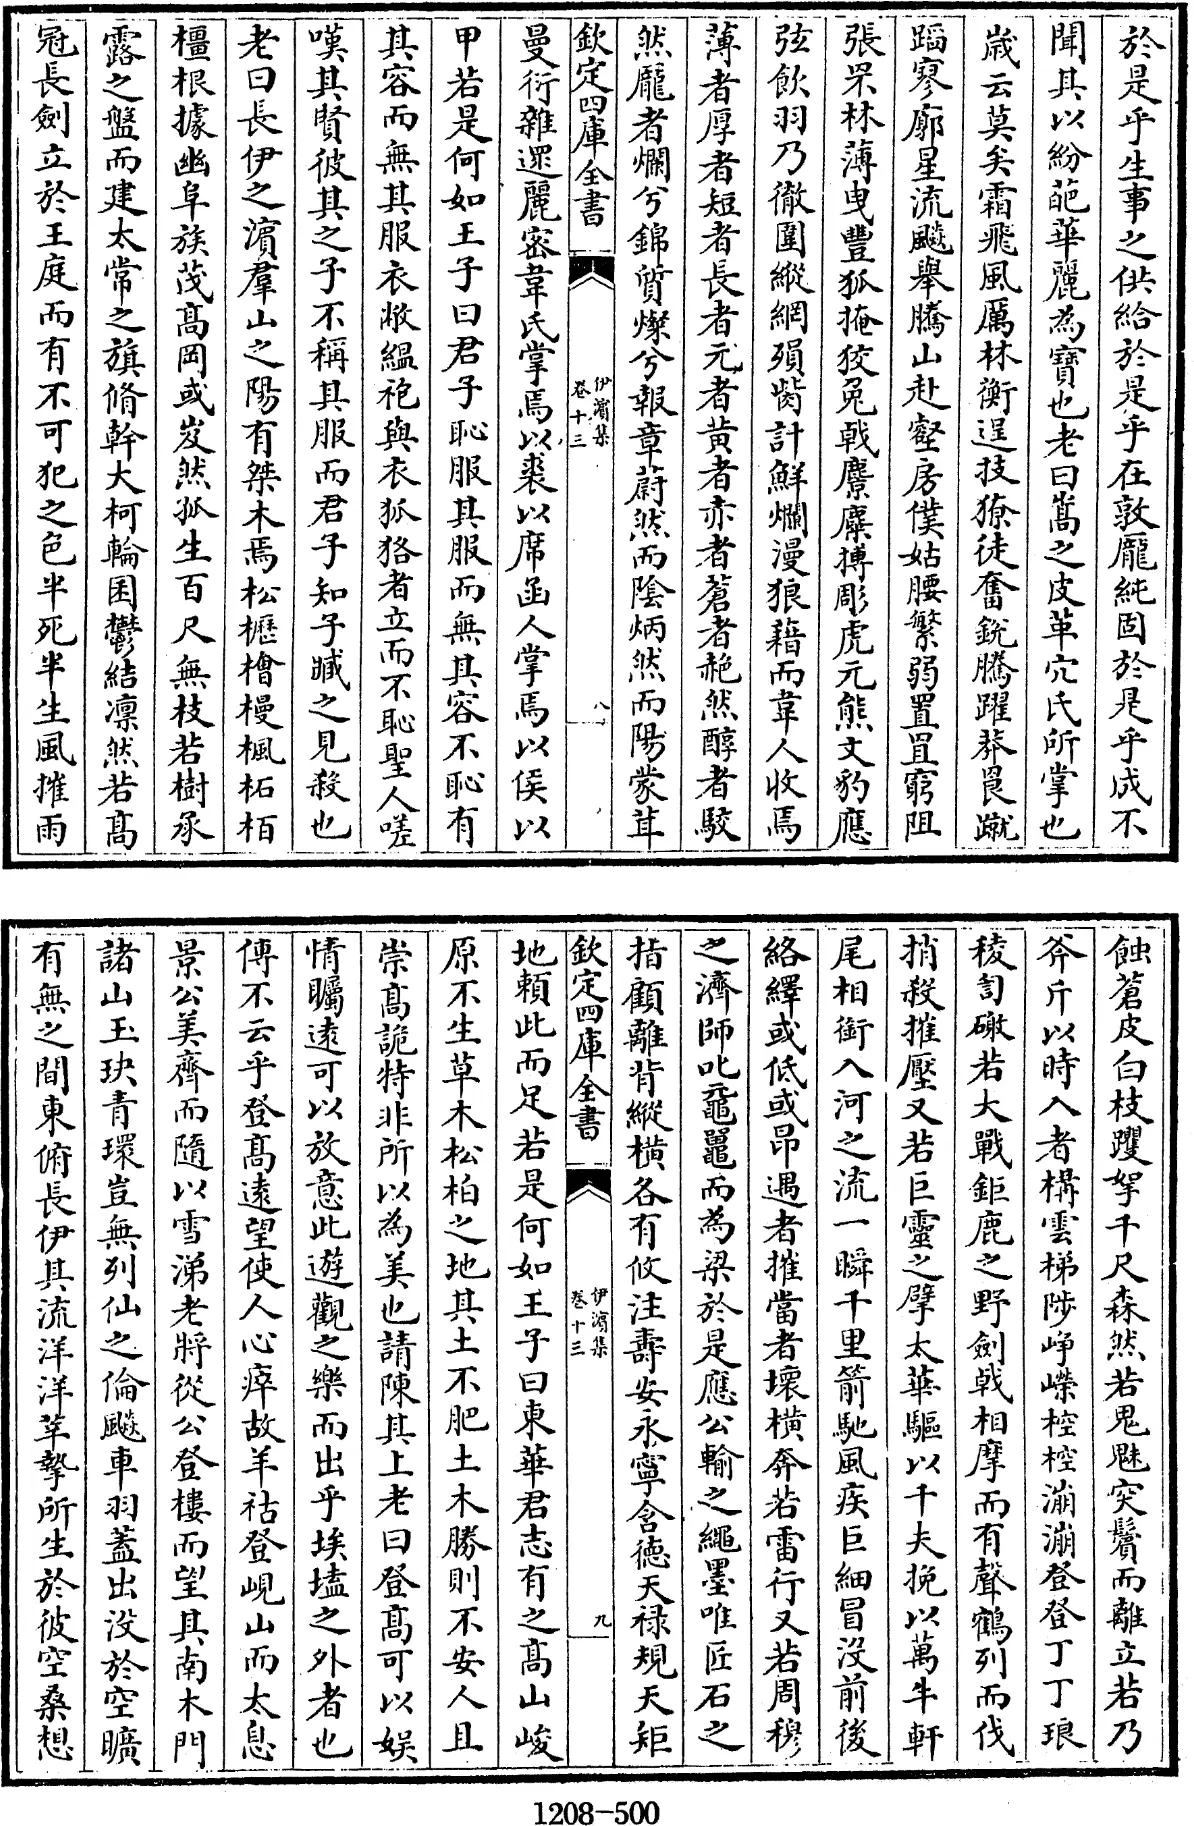 於是乎生事之供給於是乎在敦龎純固於是乎成不
聞其以紛葩華麗為寶也老曰嵩之皮革穴氏所掌也
歳云莫矣霜飛風厲林衡逞技獠徒奮銳騰躍莽罠蹴
蹈寥廓星流飈舉騰山赴壑房僕姑腰繁弱置罝窮阻
張罘林薄曳豐狐掩狡兎戟麖麋搏彫虎元熊文豹應
弦飲羽乃徹圍縱網殞胔計鮮爛漫狼藉而韋人收焉
薄者厚者短者長者元者黄者赤者蒼者䞓然醇者駮
然龎者爛兮錦質燦兮報章蔚然而陰炳然而陽蒙茸
欽定四庫全書
伊濱集
卷十三
八
曼衍雜遝麗密韋氏掌焉以裘以席函人掌焉以侯以
甲若是何如王子曰君子恥服其服而無其容不恥有
其容而無其服衣敝緼袍與衣狐狢者立而不恥聖人嗟
嘆其賢彼其之子不稱其服而君子知子臧之見殺也
老曰長伊之濵羣山之陽有桀木焉松櫪檜樠楓柘栢
橿根據幽阜族茂髙岡或岌然孤生百尺無枝若樹承
露之盤而建太常之旗脩幹大柯輪囷鬱結凛然若髙
冠長劍立於王庭而有不可犯之色半死半生風摧雨
蝕蒼皮白枝躩拏千尺森然若鬼魅突鬢而離立若乃
斧斤以時入者構雲梯陟崢嶸椌椌漰漰登登丁丁琅
稜訇礮若大戰鉅鹿之野劍㦸相摩而有聲鶴列而伐
捎殺摧壓又若巨靈之擘太華驅以千夫挽以萬牛軒
尾相銜入河之流一瞬千里箭馳風疾巨細冒沒前後
絡繹或低或昂遇者摧當者壞横奔若雷行又若周穆
之濟師叱黿鼉而為梁於是應公輸之繩墨唯匠石之
指顧離背縱横各有攸注壽安永寧含徳天禄規天矩
欽定四庫全書
伊濱集
卷十三
九
地頼此而足若是何如王子曰東華君志有之髙山峻
原不生草木松柏之地其土不肥土木勝則不安人且
崇髙詭特非所以為美也請陳其上老曰登髙可以娱
情矚逺可以放意此遊觀之樂而出乎埃壒之外者也
傳不云乎登髙逺望使人心瘁故羊祜登峴山而太息
景公美齊而隨以雪涕老將從公登樓而望其南木門
諸山玉玦青環豈無列仙之倫飈車羽蓋出没於空曠
有無之間東俯長伊其流洋洋莘摯所生於彼空桑想
1208-500